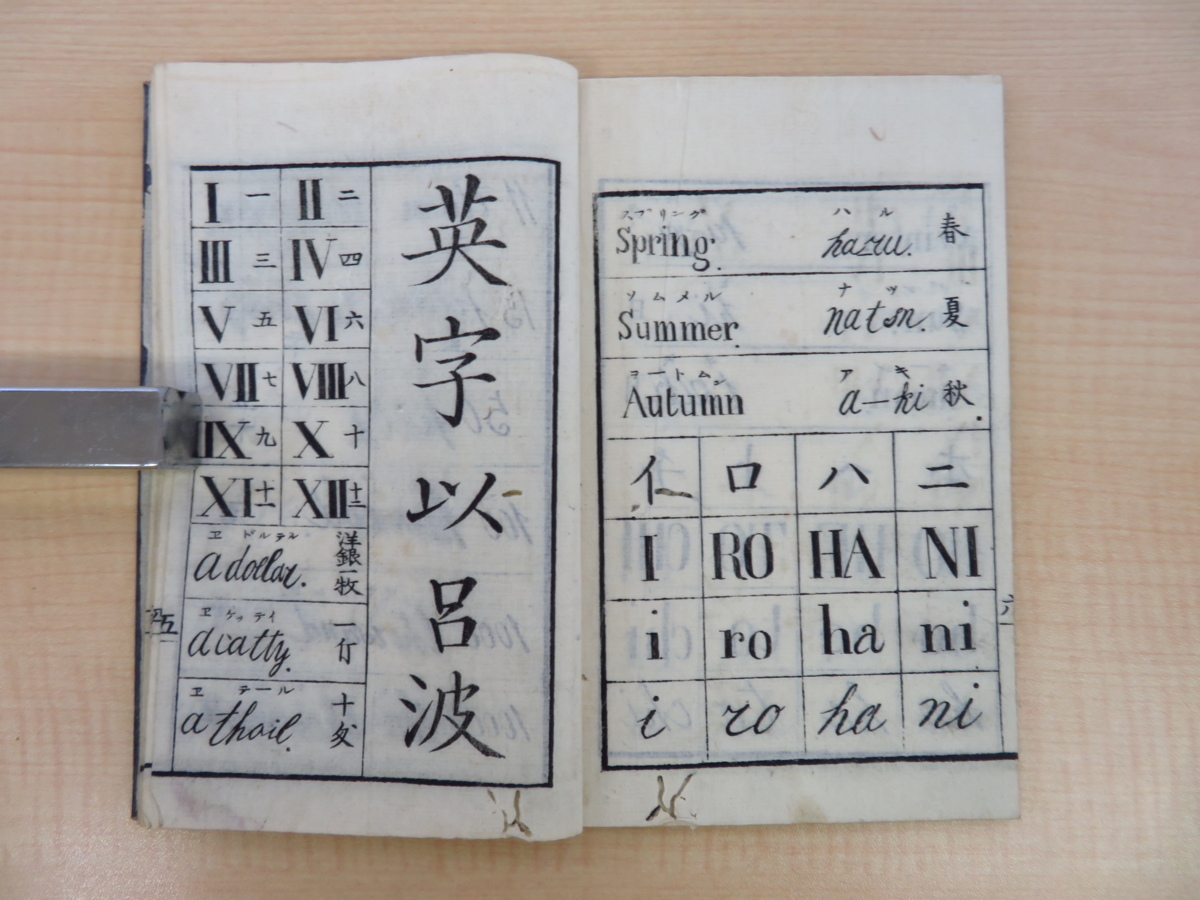 スプリング ハル
Spring. haru. 春
ソムメル ナツ
Summer. natsu. 夏
ヨートムン アキ
Autumn a-ki 秋.
イ ロ ハ ニ
I RO HA NI
i ro ha ni
i ro ha ni
六
英字以呂波
I 一 II 二
III 三 IV 四
V 五 VI 六
VII 七 VIII 八
IX 九 X 十
XI 十一 XII 十二
ヱ ドルテル
a dollar. 洋銀一牧
ヱ ケッテイ
a catty. 一斤
ヱ テール
a thail. 十匁
五